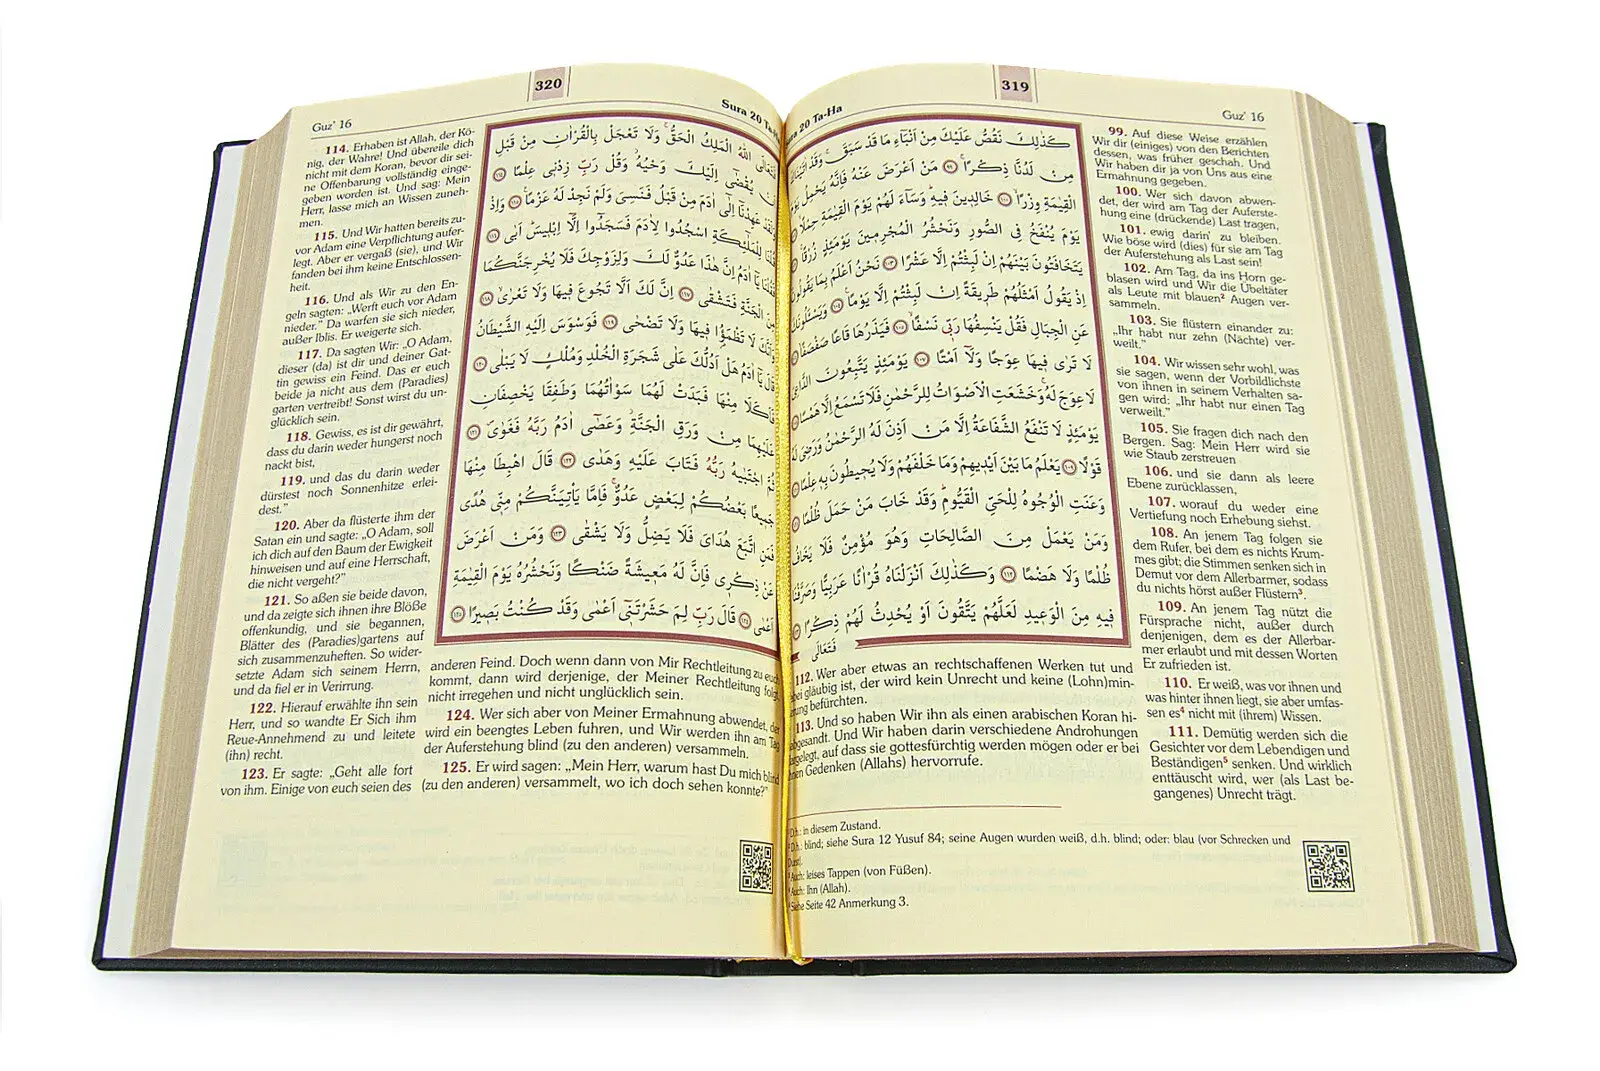 319
Sura 20 Ta-Ha
Guz’ 16
كَذٰلِكَ نَقُصُّ عَلَيْكَ مِنْ اَنْبَاءِ مَا قَدْ سَبَقَ وَقَدْ اٰتَيْنَاكَ
مِنْ لَدُنَّا ذِكْرًا ٩٩ مَنْ اَعْرَضَ عَنْهُ فَاِنَّهُ يَحْمِلُ يَوْمَ
الْقِيٰمَةِ وِزْرًا ١٠٠ خَالِدِينَ فِيهِ وَسَاءَ لَهُمْ يَوْمَ الْقِيٰمَةِ حِمْلًا
يَوْمَ يُنْفَخُ فِى الصُّورِ وَنَحْشُرُ الْمُجْرِمِينَ يَوْمَئِذٍ زُرْقًا
يَتَخَافَتُونَ بَيْنَهُمْ اِنْ لَبِثْتُمْ اِلَّا عَشْرًا ١٠٣ نَحْنُ اَعْلَمُ بِمَا يَقُولُونَ
اِذْ يَقُولُ اَمْثَلُهُمْ طَرِيقَةً اِنْ لَبِثْتُمْ اِلَّا يَوْمًا ١٠٤ وَيَسْئَلُونَكَ
عَنِ الْجِبَالِ فَقُلْ يَنْسِفُهَا رَبِّى نَسْفًا ١٠٥ فَيَذَرُهَا قَاعًا صَفْصَفًا
لَا تَرٰى فِيهَا عِوَجًا وَلَا اَمْتًا ١٠٧ يَوْمَئِذٍ يَتَّبِعُونَ الدَّاعِىَ
لَا عِوَجَ لَهُ وَخَشَعَتِ الْاَصْوَاتُ لِلرَّحْمٰنِ فَلَا تَسْمَعُ اِلَّا هَمْسًا
يَوْمَئِذٍ لَا تَنْفَعُ الشَّفَاعَةُ اِلَّا مَنْ اَذِنَ لَهُ الرَّحْمٰنُ وَرَضِىَ لَهُ
قَوْلًا ١٠٩ يَعْلَمُ مَا بَيْنَ اَيْدِيهِمْ وَمَا خَلْفَهُمْ وَلَا يُحِيطُونَ بِهِ عِلْمًا
وَعَنَتِ الْوُجُوهُ لِلْحَىِّ الْقَيُّومِ وَقَدْ خَابَ مَنْ حَمَلَ ظُلْمًا
وَمَنْ يَعْمَلْ مِنَ الصَّالِحَاتِ وَهُوَ مُؤْمِنٌ فَلَا يَخَافُ
ظُلْمًا وَلَا هَضْمًا ١١٢ وَكَذٰلِكَ اَنْزَلْنَاهُ قُرْاٰنًا عَرَبِيًّا وَصَرَّفْنَا
فِيهِ مِنَ الْوَعِيدِ لَعَلَّهُمْ يَتَّقُونَ اَوْ يُحْدِثُ لَهُمْ ذِكْرًا
فَتَعَالَى
99. Auf diese Weise erzählen
Wir dir (einiges) von den Berichten
dessen, was früher geschah. Und
Wir haben dir ja von Uns aus eine
Ermahnung gegeben.
100. Wer sich davon abwen-
det, der wird am Tag der Auferste-
hung eine (drückende) Last tragen,
101. ewig darin¹ zu bleiben.
Wie böse wird (dies) für sie am Tag
der Auferstehung als Last sein!
102. Am Tag, da ins Horn ge-
blasen wird und Wir die Übeltäter
als Leute mit blauen² Augen ver-
sammeln.
103. Sie flüstern einander zu:
„Ihr habt nur zehn (Nächte) ver-
weilt.“
104. Wir wissen sehr wohl, was
sie sagen, wenn der Vorbildlichste
von ihnen in seinem Verhalten sa-
gen wird: „Ihr habt nur einen Tag
verweilt.“
105. Sie fragen dich nach den
Bergen. Sag: Mein Herr wird sie
wie Staub zerstreuen
106. und sie dann als leere
Ebene zurücklassen,
107. worauf du weder eine
Vertiefung noch Erhebung siehst.
108. An jenem Tag folgen sie
dem Rufer, bei dem es nichts Krum-
mes gibt; die Stimmen senken sich in
Demut vor dem Allerbarmer, sodass
du nichts hörst außer Flüstern³.
109. An jenem Tag nützt die
Fürsprache nicht, außer durch
denjenigen, dem es der Allerbar-
mer erlaubt und mit dessen Worten
Er zufrieden ist.
110. Er weiß, was vor ihnen und
was hinter ihnen liegt, sie aber umfas-
sen es⁴ nicht mit (ihrem) Wissen.
111. Demütig werden sich die
Gesichter vor dem Lebendigen und
Beständigen⁵ senken. Und wirklich
enttäuscht wird, wer (als Last be-
gangenes) Unrecht trägt.
112. Wer aber etwas an rechtschaffenen Werken tut und
bei gläubig ist, der wird kein Unrecht und keine (Lohn)min-
befürchten.
113. Und so haben Wir ihn als einen arabischen Koran hi-
Und Wir haben darin verschiedene Androhungen
auf dass sie gottesfürchtig werden mögen oder er bei
Gedenken (Allahs) hervorrufe.
in diesem Zustand.
blind; siehe Sura 12 Yusuf 84; seine Augen wurden weiß, d.h. blind; oder: blau (vor Schrecken und
Durst).
Auch: leises Tappen (von Füßen).
Auch: Ihn (Allah).
Siehe Seite 42 Anmerkung 3.
320
Guz’ 16
Sura 20
فَتَعَالَى اللّٰهُ الْمَلِكُ الْحَقُّ وَلَا تَعْجَلْ بِالْقُرْاٰنِ مِنْ قَبْلِ
يُقْضٰى اِلَيْكَ وَحْيُهُ وَقُلْ رَبِّ زِدْنِى عِلْمًا ١١٤
عَهِدْنَا اِلٰى اٰدَمَ مِنْ قَبْلُ فَنَسِىَ وَلَمْ نَجِدْ لَهُ عَزْمًا ١١٥ وَاِذْ
قُلْنَا لِلْمَلٰئِكَةِ اسْجُدُوا لِاٰدَمَ فَسَجَدُوا اِلَّا اِبْلِيسَ اَبٰى ١١٦
فَقُلْنَا يَا اٰدَمُ اِنَّ هٰذَا عَدُوٌّ لَكَ وَلِزَوْجِكَ فَلَا يُخْرِجَنَّكُمَا
مِنَ الْجَنَّةِ فَتَشْقٰى ١١٧ اِنَّ لَكَ اَلَّا تَجُوعَ فِيهَا وَلَا تَعْرٰى ١١٨
وَاَنَّكَ لَا تَظْمَؤُا فِيهَا وَلَا تَضْحٰى ١١٩ فَوَسْوَسَ اِلَيْهِ الشَّيْطَانُ
قَالَ يَا اٰدَمُ هَلْ اَدُلُّكَ عَلٰى شَجَرَةِ الْخُلْدِ وَمُلْكٍ لَا يَبْلٰى ١٢٠
فَاَكَلَا مِنْهَا فَبَدَتْ لَهُمَا سَوْاٰتُهُمَا وَطَفِقَا يَخْصِفَانِ
عَلَيْهِمَا مِنْ وَرَقِ الْجَنَّةِ وَعَصٰى اٰدَمُ رَبَّهُ فَغَوٰى ١٢١
ثُمَّ اجْتَبٰيهُ رَبُّهُ فَتَابَ عَلَيْهِ وَهَدٰى ١٢٢ قَالَ اهْبِطَا مِنْهَا
جَمِيعًا بَعْضُكُمْ لِبَعْضٍ عَدُوٌّ فَاِمَّا يَاْتِيَنَّكُمْ مِنِّى هُدًى
فَمَنِ اتَّبَعَ هُدَاىَ فَلَا يَضِلُّ وَلَا يَشْقٰى ١٢٣ وَمَنْ اَعْرَضَ
عَنْ ذِكْرِى فَاِنَّ لَهُ مَعِيشَةً ضَنْكًا وَنَحْشُرُهُ يَوْمَ الْقِيٰمَةِ
اَعْمٰى ١٢٤ قَالَ رَبِّ لِمَ حَشَرْتَنِى اَعْمٰى وَقَدْ كُنْتُ بَصِيرًا ١٢٥
114. Erhaben ist Allah, der Kö-
nig, der Wahre! Und übereile dich
nicht mit dem Koran, bevor dir sei-
ne Offenbarung vollständig einge-
geben worden ist. Und sag: Mein
Herr, lasse mich an Wissen zuneh-
men.
115. Und Wir hatten bereits zu-
vor Adam eine Verpflichtung aufer-
legt. Aber er vergaß (sie), und Wir
fanden bei ihm keine Entschlossen-
heit.
116. Und als Wir zu den En-
geln sagten: „Werft euch vor Adam
nieder.“ Da warfen sie sich nieder,
außer Iblis. Er weigerte sich.
117. Da sagten Wir: „O Adam,
dieser (da) ist dir und deiner Gat-
tin gewiss ein Feind. Das er euch
beide ja nicht aus dem (Paradies)
garten vertreibt! Sonst wirst du un-
glücklich sein.
118. Gewiss, es ist dir gewährt,
dass du darin weder hungerst noch
nackt bist,
119. und das du darin weder
dürstest noch Sonnenhitze erlei-
dest.“
120. Aber da flüsterte ihm der
Satan ein und sagte: „O Adam, soll
ich dich auf den Baum der Ewigkeit
hinweisen und auf eine Herrschaft,
die nicht vergeht?“
121. So aßen sie beide davon,
und da zeigte sich ihnen ihre Blöße
offenkundig, und sie begannen,
Blätter des (Paradies)gartens auf
sich zusammenzuheften. So wider-
setzte Adam sich seinem Herrn,
und da fiel er in Verirrung.
122. Hierauf erwählte ihn sein
Herr, und so wandte Er Sich ihm
Reue-Annehmend zu und leitete
(ihn) recht.
123. Er sagte: „Geht alle fort
von ihm. Einige von euch seien des
anderen Feind. Doch wenn dann von Mir Rechtleitung zu euch
kommt, dann wird derjenige, der Meiner Rechtleitung folgt,
nicht irregehen und nicht unglücklich sein.
124. Wer sich aber von Meiner Ermahnung abwendet, der
wird ein beengtes Leben fuhren, und Wir werden ihn am Tag
der Auferstehung blind (zu den anderen) versammeln.
125. Er wird sagen: „Mein Herr, warum hast Du mich blind
(zu den anderen) versammelt, wo ich doch sehen konnte?“